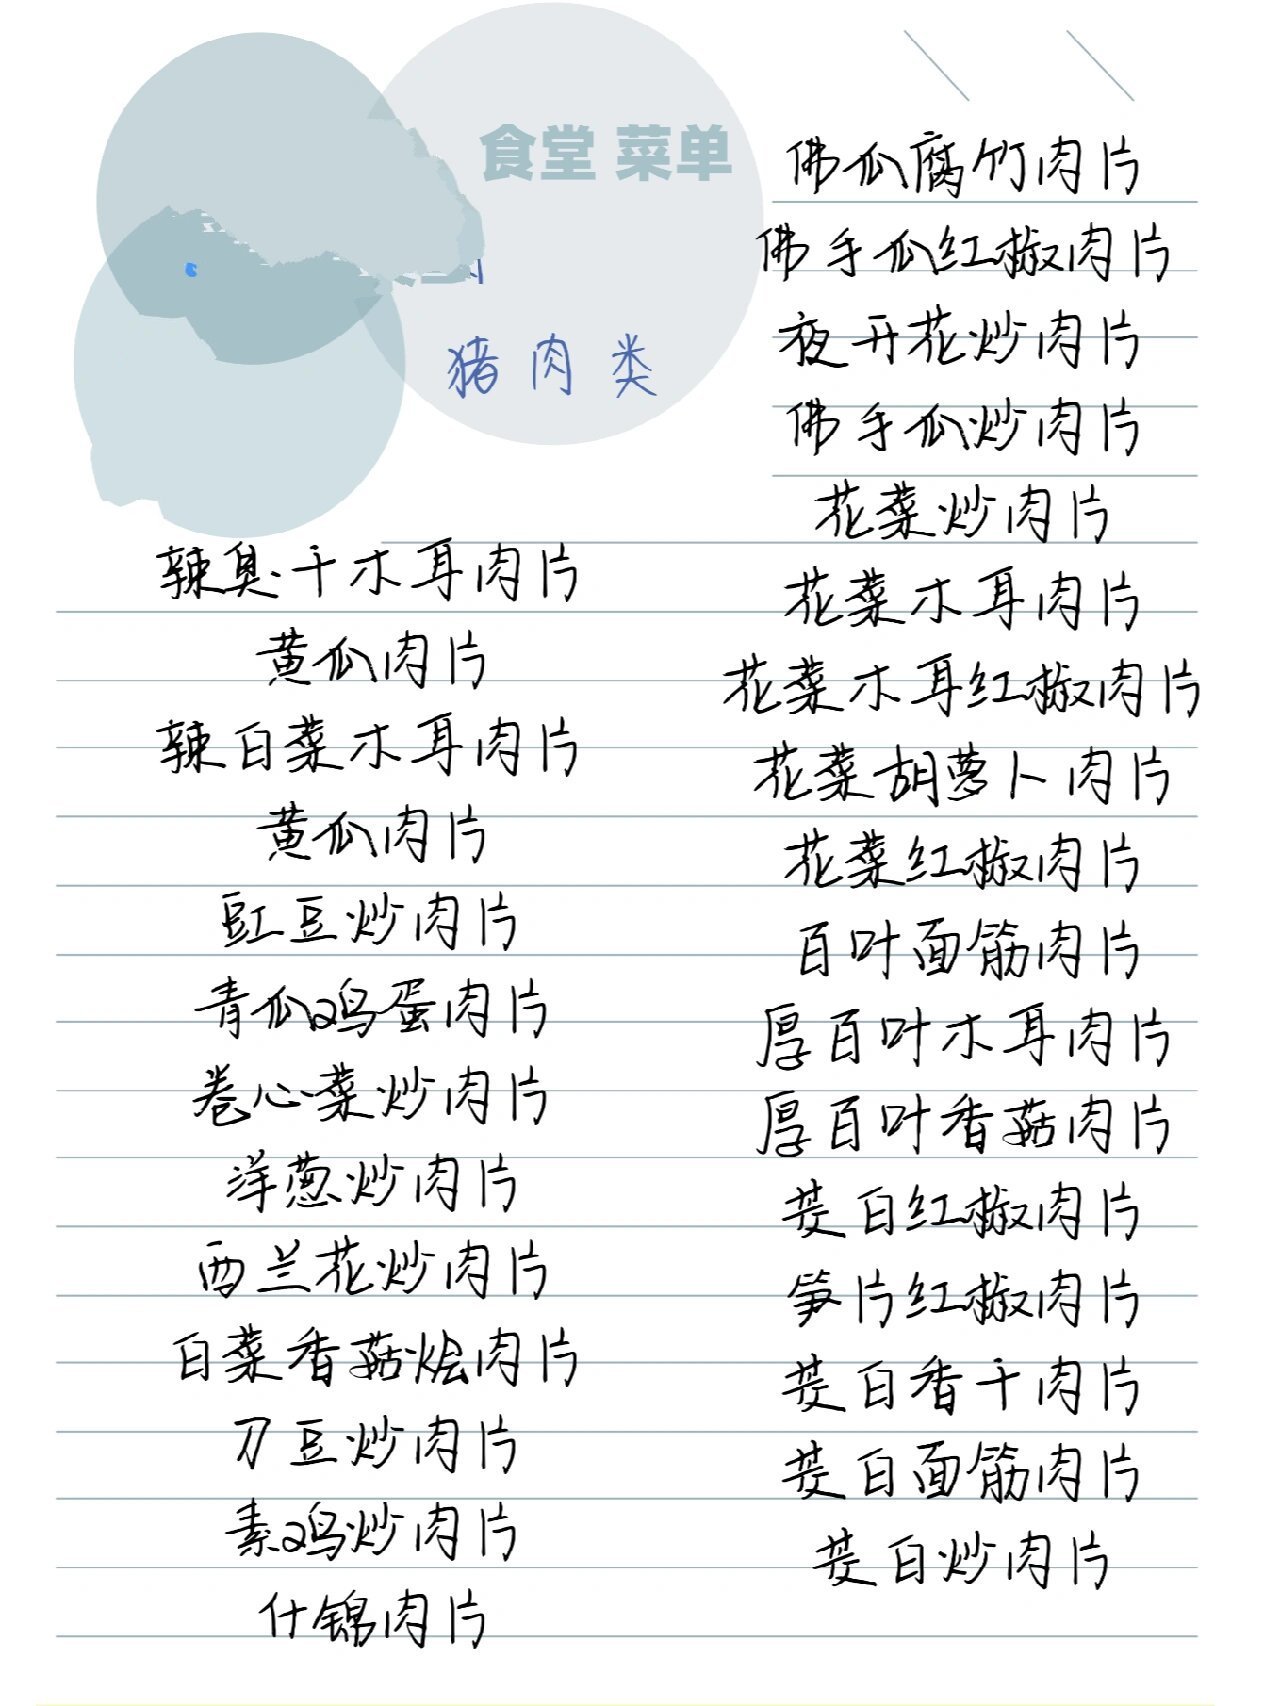 食堂 菜单
猪肉类
辣臭干木耳肉片
黄瓜肉片
辣白菜木耳肉片
黄瓜肉片
豇豆炒肉片
青瓜鸡蛋肉片
卷心菜炒肉片
洋葱炒肉片
西兰花炒肉片
白菜香菇烩肉片
刀豆炒肉片
素鸡炒肉片
什锦肉片
佛瓜腐竹肉片
佛手瓜红椒肉片
夜开花炒肉片
佛手瓜炒肉片
花菜炒肉片
花菜木耳肉片
花菜木耳红椒肉片
花菜胡萝卜肉片
花菜红椒肉片
百叶面筋肉片
厚百叶木耳肉片
厚百叶香菇肉片
茭白红椒肉片
笋片红椒肉片
茭白香干肉片
茭白面筋肉片
茭白炒肉片